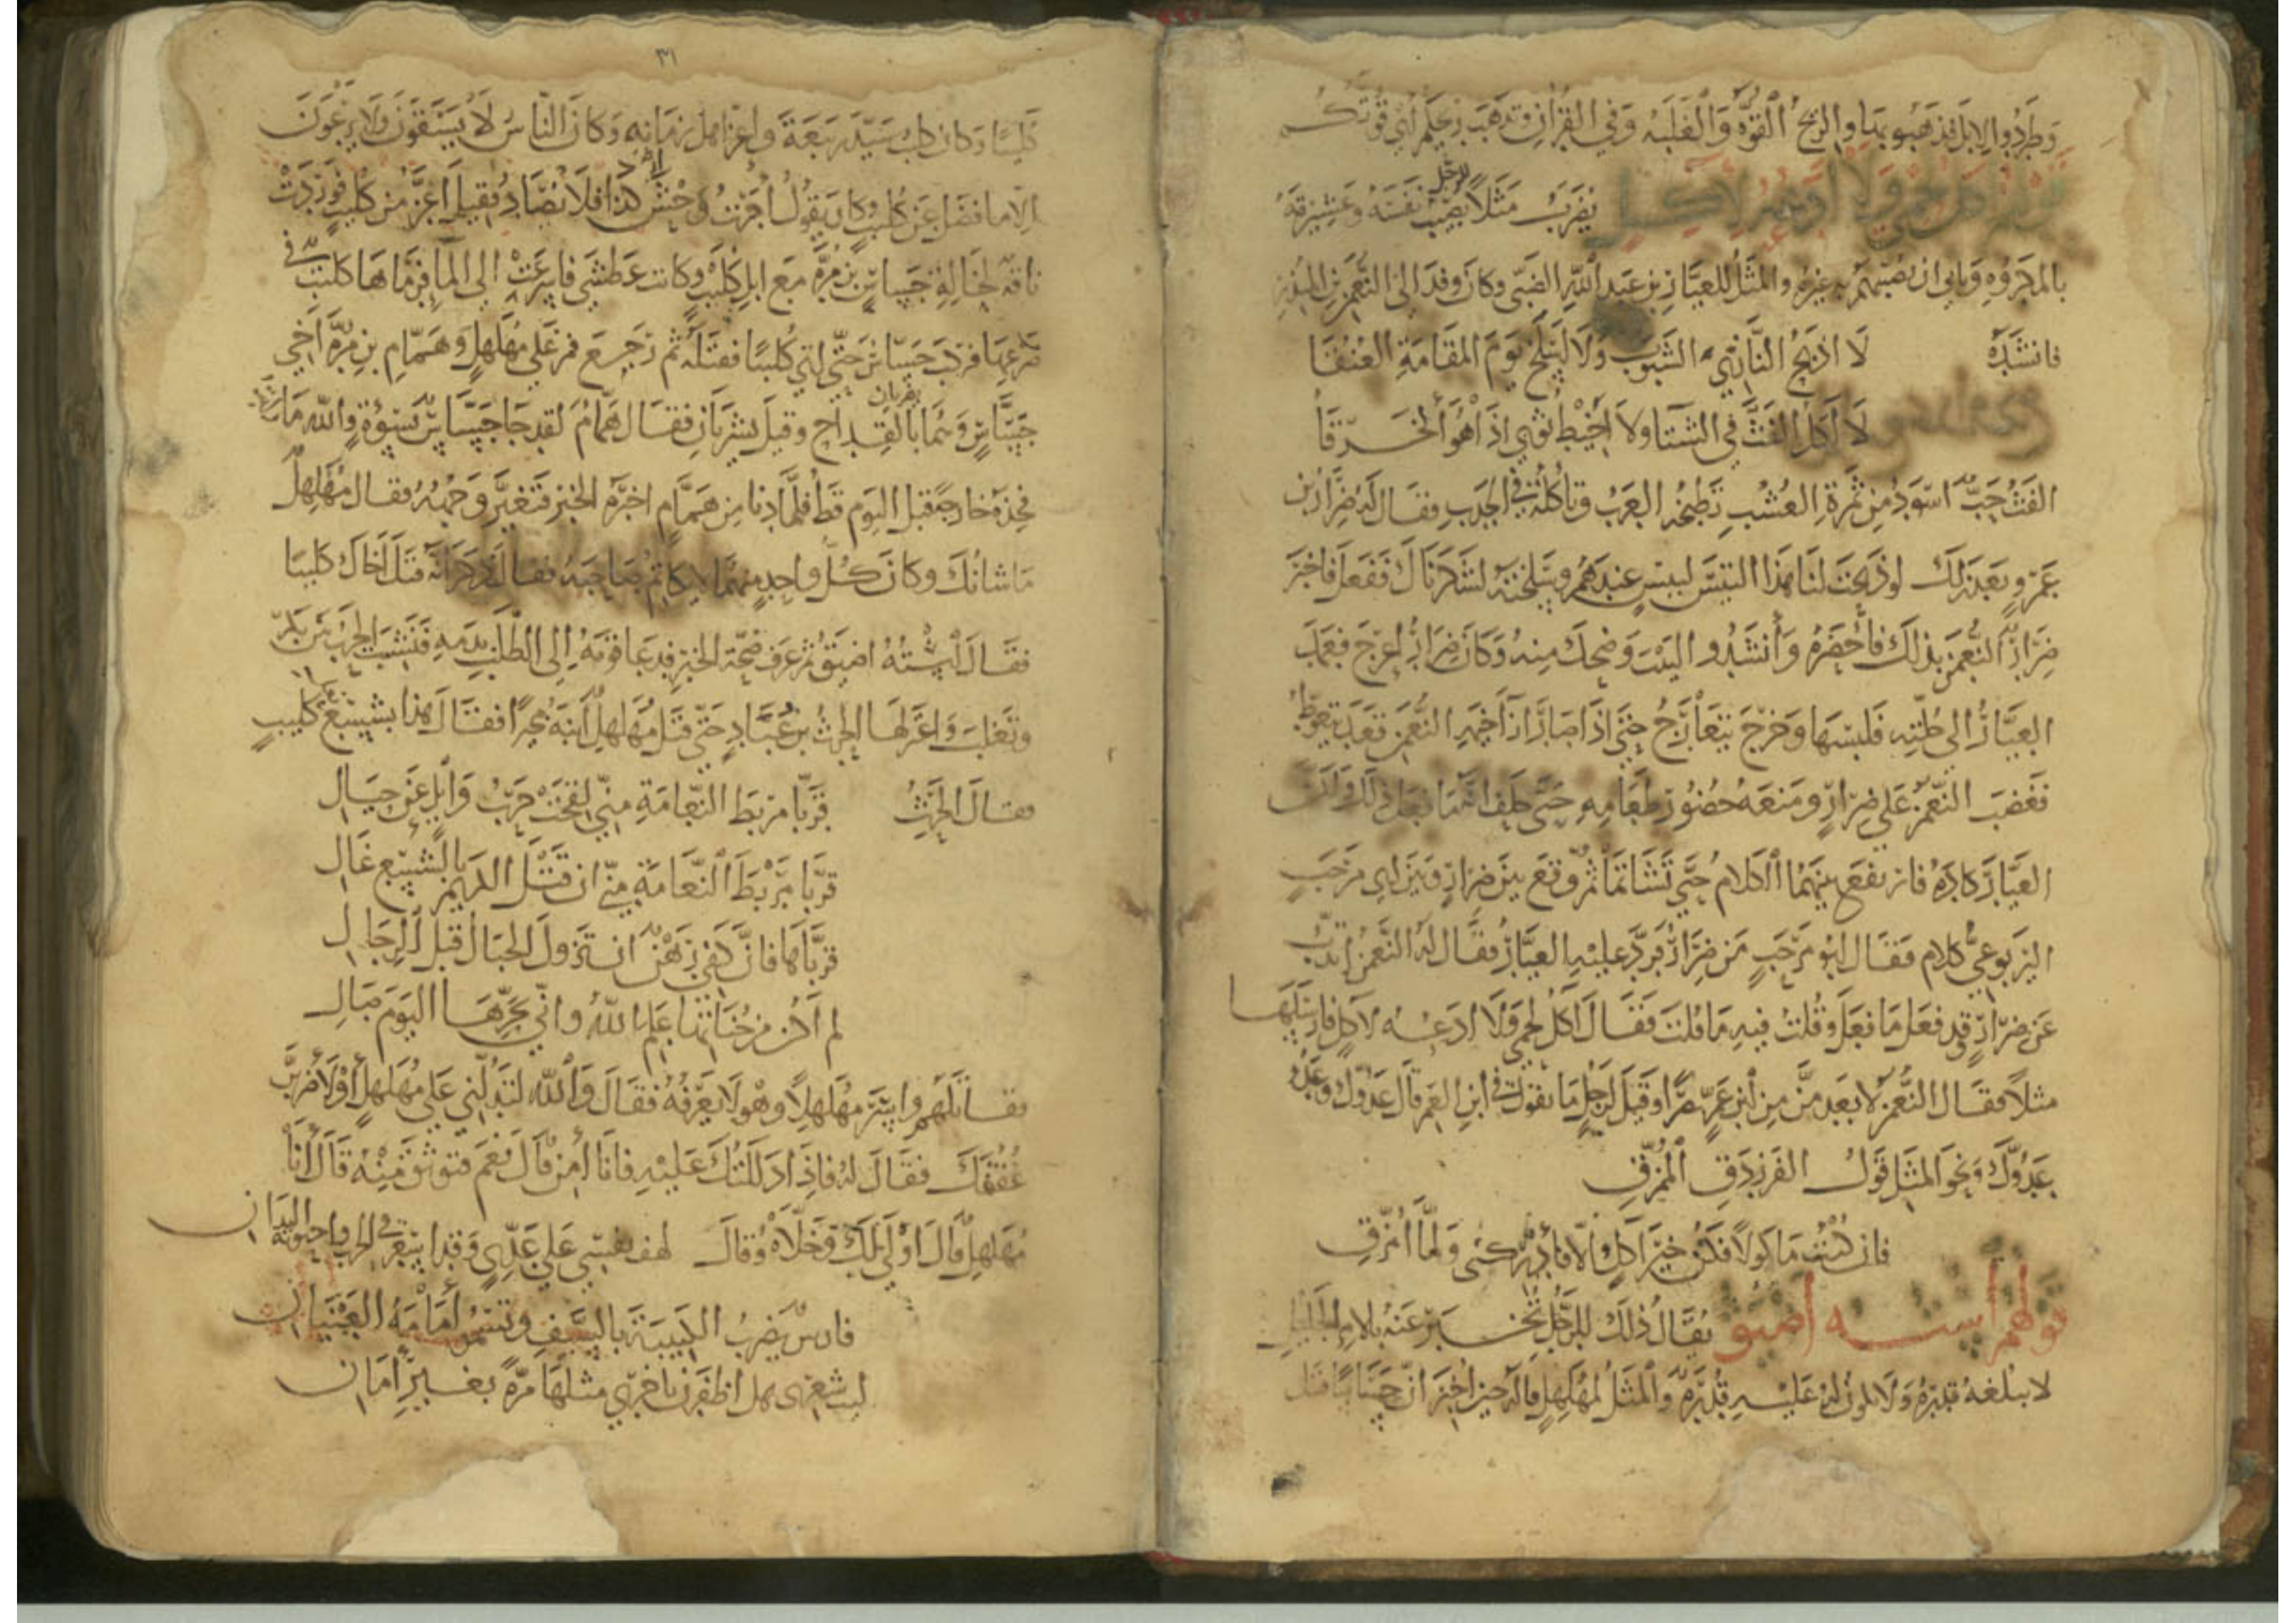 وَطَرَدُوا الإبلَ فذهَبُو بها والريحُ القُوَّه وَالْغَلَبَه وَفي القرآن وتذهَبَ ريحكم أي قوّتكم
يُضرَبُ مثلاً للرجل يصيب نفسَه وعشيرَته
بالمكروه ويابى ان يصيبهم به غيره والمثلُ للعيّار بن عبد الله الضبّى وكان وفدَ الى النعمن بن المنذر
فانشدَهُ لا اذبحُ النّازىَ الشبوبَ ولا اسلخ يَومَ المقامةِ العُنُقَا
لا آكل الفَثَّ في الشتا ولا اخيط ثوبي اذا هُو انخرَقا
الفَثّ حَبٌّ اسوَدُ من ثمرة العُشبِ تطبخه العربُ وتاكله في الجَدب فقال له ضرار بن
عَمْرو بعد ذلك لو ذبحتَ لنا هذا التيسَ ليس عندهم وسلخته لشكرناك ففعل فاخبر
ضرارٌ النعمنَ بذلك فأحضرهُ وأنشدُوا البيت وضحك منه وكان ضرارٌ اعرَج فعمدَ
العيّارُ الى حُلّته فلبسَها وخرَج يتعارَجُ حتى اذا صارَ ازآ خيمه النعمن قعَدَ يتغوط
فغضبَ النعمنُ على ضرارٍ ومَنعَه حضورَ طعامِهِ حتى حلف انه ما فعل ذلك ولكن
العيّارَ كادَه فارتفعَ بينهما الكلامُ حتى تشاتما ثم وقع بين ضرارٍ وبين ابى مَرحَبٍ
اليربوعيّ كلام فقال ابُو مَرحَبٍ مَن ضرارٌ فردّ عليه العيّارُ فقال له النعمن اتذبّ
عن ضرارٍ وقد فعل ما فعل وقُلتَ فيه ما قلتَ فقال آكلُ لحمى وَلا ادَعُه لآكلٍ فارسَلها
مثلاً فقال النعمن لا يعدمَنَّ مِن ابن عمٍّ نصراً وقيل لرجلٍ ما تقول في ابن العم قال عدوّك وعدُوّ
عَدُوّك ونحو المثل قولُ الفرزدق المُمزّق
فان كُنتُ ماكولاً فكن خيرَ آكلٍ والا فادركنى ولمّا أُمزّق
قولهم استه أضيق يُقالُ ذلك للرّجل تُخبر عنه بالامر الجليل
لا يبلغهُ قدرهُ ولا عليه قدره والمثلُ لمُهَلهلٍ قاله حين اخبر ان جسّاسًا قتل
٣١
كليبًا وكان كليبُ سَيّدَ رَبيعَةَ واعزّ اهل زمانه وكان الناسُ لا يَسْتقونَ ولا يرعَونَ
الا ما فضَل عن كليب وكان يقولُ أجَرْتُ وحش كذا فلا يُصادُ فقيلَ اعزّ من كليبٍ فورَدَتْ
ناقةٌ لخالةِ جَسّاسِ بن مُرّه مع ابل كليبٍ وكانت عَطشى فاسرَعَتْ الى المآ فرمَاها كليبٌ في
ضرعها فركب جسّاسٌ حتى لقي كُليبًا فقتله ثم رَجع فمر على مُهَلهلٍ وهَمّامِ بن مُرّه أخى
جسّاسٍ وهُما يضربان بالقداح وقيل يشربان فقال همّامُ لقد جا جسّاسٌ بسَوْءةٍ والله ما رايت
فخذه خارجةً قبل اليَوم قط فلمّا دنا من همّامٍ اخبره الخبر فتغيّر وَجهُهُ فقال مُهَلهلٌ
ما شانك وكان كلُّ واحدٍ منهُما لا يكاتمُ صاحبَه فقال ذكر انه قتل اخاك كليبًا
فقال استُهُ اضيَقُ ثم عرَفَ صحّة الخبر فدعا قومَه الى الطلب بدمه فنشبت الحرب بين بكر
وتغلبَ واعتزلها الحرثُ بن عُبَادٍ حتى قتل مُهَلهلٌ ابنَه بُجيرًا فقال هذا بشسع كليبٍ
فقال الحَرثُ قَرّبا مَربَطَ النعامةِ منّي لقحَتْ حربُ وَائلٍ عَن حِيَالِ
قرّبا مَربَطَ النّعامَةِ منّي ان قَتْلَ الكريم بالشسع غَالِ
قرّباها فانّ كفّي رَهْنٌ ان تزولَ الجبالُ قبل الرجَالِ
لم أكن من جُناتها عَلِم اللهُ واني بحَرّها اليَومَ صَالِ
فقاتلهم واسَرَ مُهَلهلًا وهو لا يَعرفُهُ فقال والله لتدُلّني على مُهَلهلٍ أوْ لأضربنّ
عُنُقَك فقال له فاذا دَلَلتُك عليه فانا آمن قال نعم فتوثّق منه قال أنا
مُهَلهل قال اولى لك وَخَلّاه وقال لهف نفسي على عَدِيٍّ وقد اسقر في الحرب واحتوته اليدانِ
فارسٌ يضربُ الكتيبةَ بالسّيفِ وتسمُو أمامَهُ العينانِ
ليت شعرى هل اظفرن باخرى مثلها مرّةً بغير أمَانِ